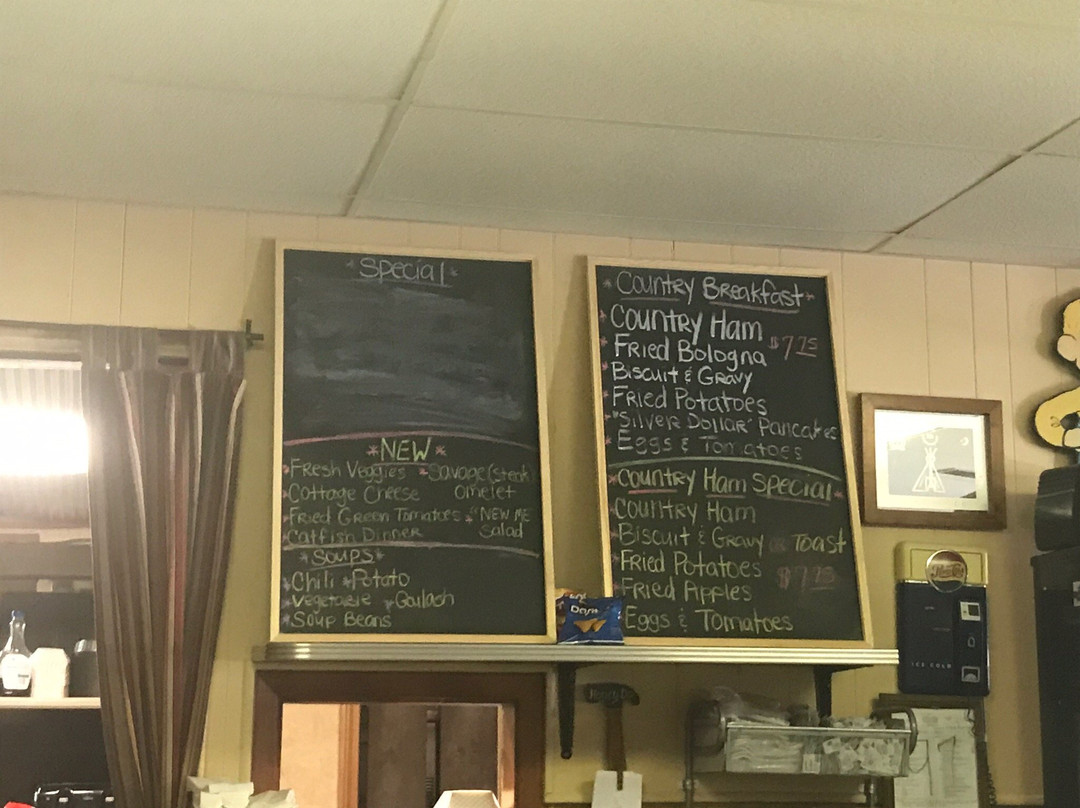 *Special*
*NEW*
*Fresh Veggies *Savage (steak)
*Cottage Cheese Omelet
*Fried Green Tomatoes *"NEW ME
*Catfish Dinner Salad
*SOUPS*
*Chili *Potato
*Vegetable *Goulash
*Soup Beans
*Country Breakfast*
*Country Ham
*Fried Bologna $7.75
*Biscuit & Gravy
*Fried Potatoes
*"Silver Dollar" Pancakes
*Eggs & Tomatoes
*Country Ham Special*
*Country Ham
*Biscuit & Gravy or Toast
*Fried Potatoes $7.75
*Fried Apples
*Eggs & Tomatoes
ICE COLD